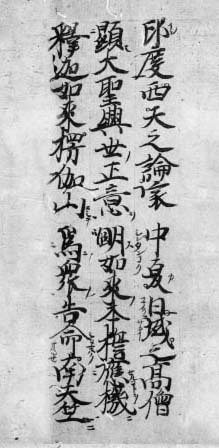 印度西天之論家 中夏日域之高僧
顯大聖興世正意 明如來本誓應機
釋迦如來楞伽山 爲衆告命南天竺